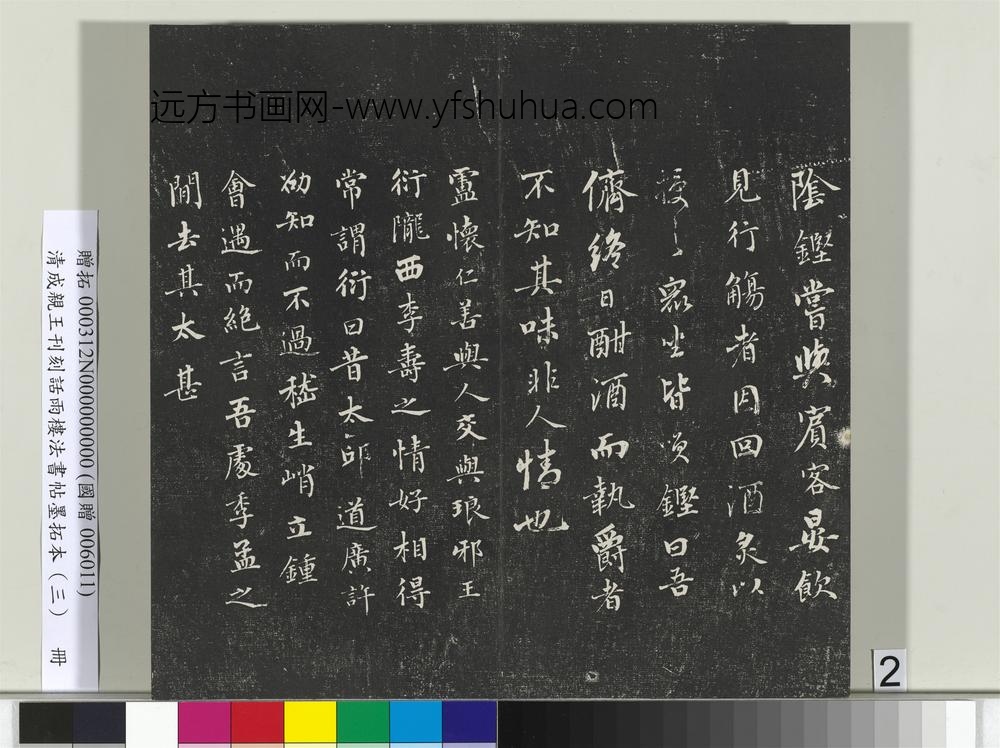 陰鏗嘗與賓客宴飲
見行觴者因回酒炙以
授之衆坐皆哭鏗曰吾
儕終日酣酒而執爵者
不知其味非人情也
盧懷仁善與人交與琅邪王
衍隴西李壽之情好相得
常謂衍曰昔太邱道廣許
劭知而不過嵇生峭立鍾
會遇而絕言吾處季孟之
間去其太甚
远方书画网-www.yfshuhua.com
贈拓 000312N000000000 (國贈 006011)
清成親王刊刻話雨樓法書帖墨拓本(三) 冊
2